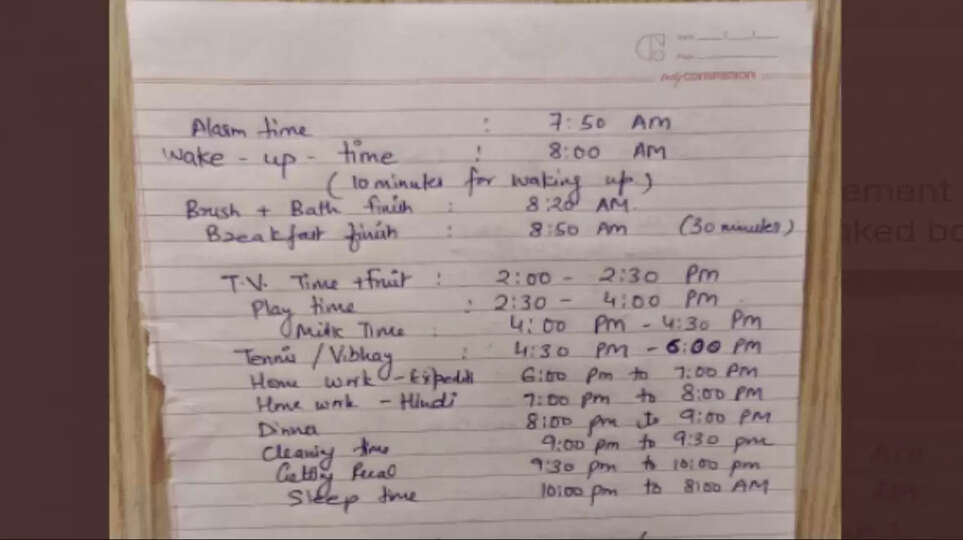 Alarm time : 7:50 AM
Wake - up - time : 8:00 AM
(10 minutes for waking up)
Brush + Bath finish : 8:20 AM.
Breakfast finish : 8:50 AM (30 minutes)
T.V. Time + fruit : 2:00 - 2:30 Pm
Play time : 2:30 - 4:00 Pm
Milk Time : 4:00 Pm - 4:30 Pm
Tennis / Vibhay : 4:30 PM - 6:00 PM
Home work - 6:00 Pm to 7:00 PM
Home work - Hindi 7:00 pm to 8:00 PM
Dinner 8:00 pm to 9:00 PM
Cleaning time 9:00 pm to 9:30 pm
9:30 pm to 10:00 pm
Sleep time 10:00 pm to 8:00 AM